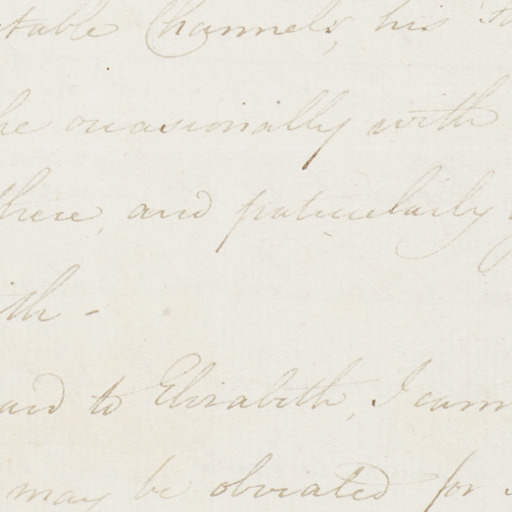 table Channels, his
he occasionally with
there, and particularly
ith -
ard to Elizabeth, I cann
may be obviated for